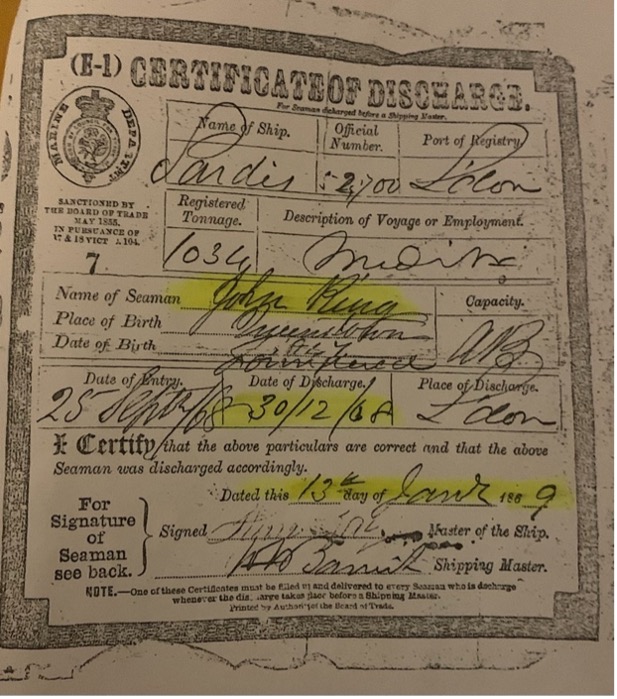 (E-1) CERTIFICATE OF DISCHARGE.
For Seamen discharged before a Shipping Master.
MARINE DEPARTMENT
Name of Ship. Official Number. Port of Registry
Sardis 52,700 L'don
SANCTIONED BY
THE BOARD OF TRADE
MAY 1855.
IN PURSUANCE OF
17 & 18 VICT C. 104.
7
Registered Tonnage. Description of Voyage or Employment.
1034
Name of Seaman John Ring
Place of Birth Queenstown
Date of Birth
Capacity.
AB
Date of Entry. Date of Discharge. Place of Discharge.
25 Sept/68 30/12/68 L'don
I Certify that the above particulars are correct and that the above
Seaman was discharged accordingly.
Dated this 13th day of Jany 1869
For
Signature
of
Seaman
see back.
Signed Master of the Ship.
Shipping Master.
NOTE.—One of these Certificates must be filled up and delivered to every Seaman who is discharge
whenever the discharge takes place before a Shipping Master.
Printed by Author of the Board of Trade.